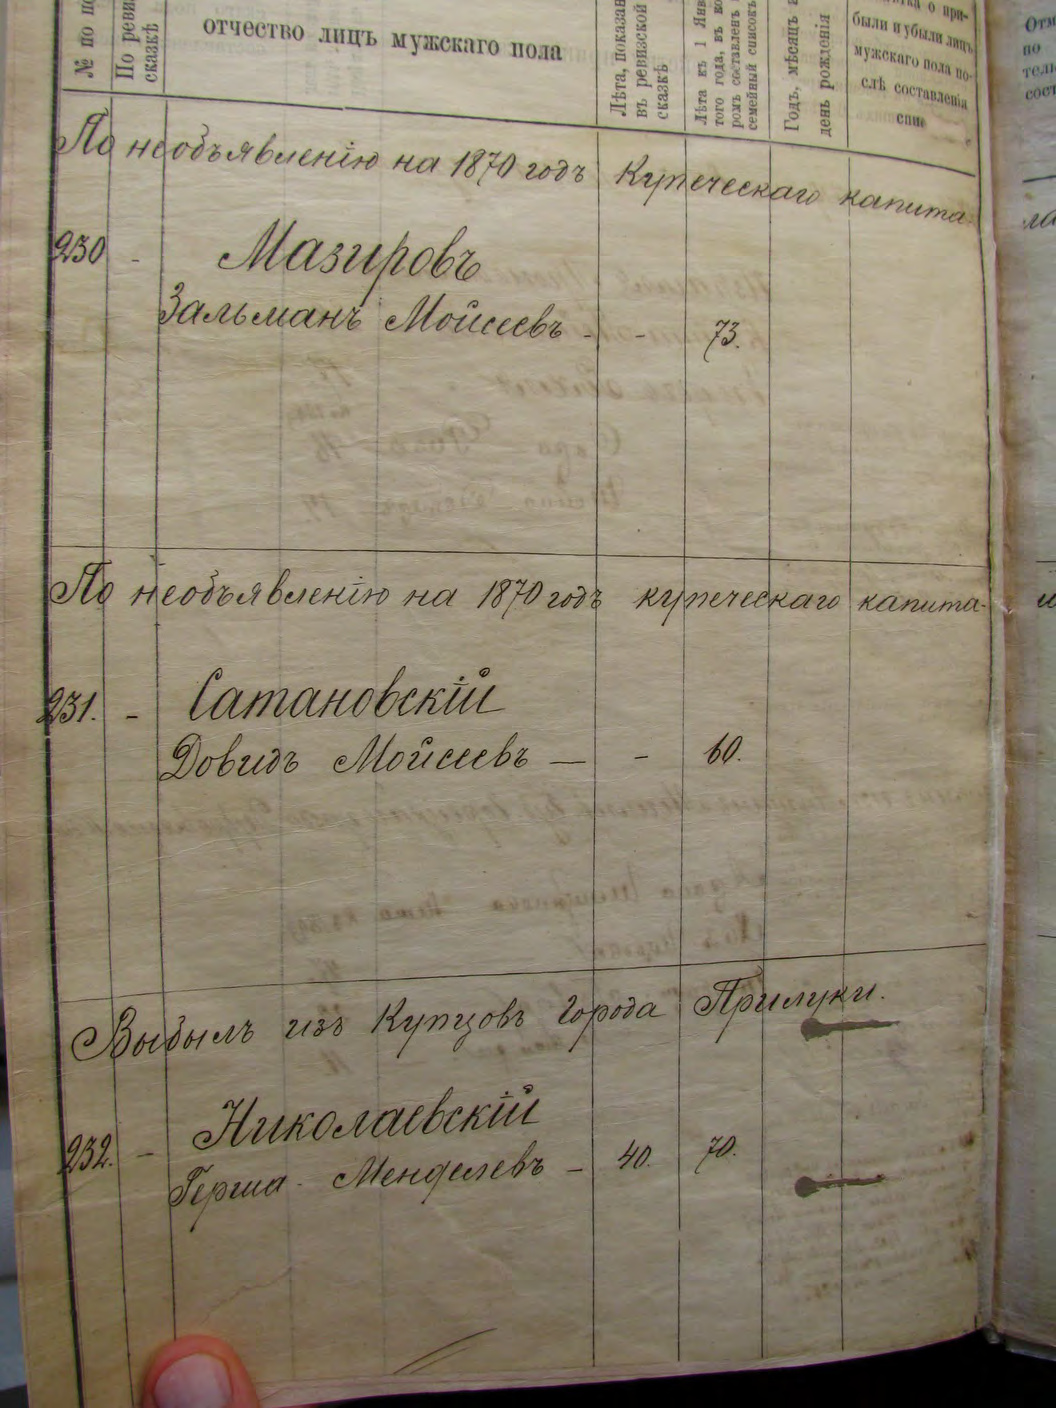 № по
По
сказкѣ
отчество лицъ мужскаго пола
Лѣта,
въ ревизской
сказкѣ
Лѣта къ 1
того года, въ
ромъ составленъ
семейный списокъ
Годъ, мѣсяцъ
день рожденія
о при-
были и убыли лицъ
мужскаго пола по-
слѣ составленія
По необъявленію на 1870 годъ Купеческаго капита-
230 - Мазировъ
Зальманъ Моисеевъ - - 73.
По необъявленію на 1870 годъ купеческаго капита-
231. - Сатановскій
Довидъ Моисеевъ — - 60.
Выбылъ изъ Купцовъ Города Прилуки.
232. - Николаевскій
Герша - Менделевъ - 40. 70.